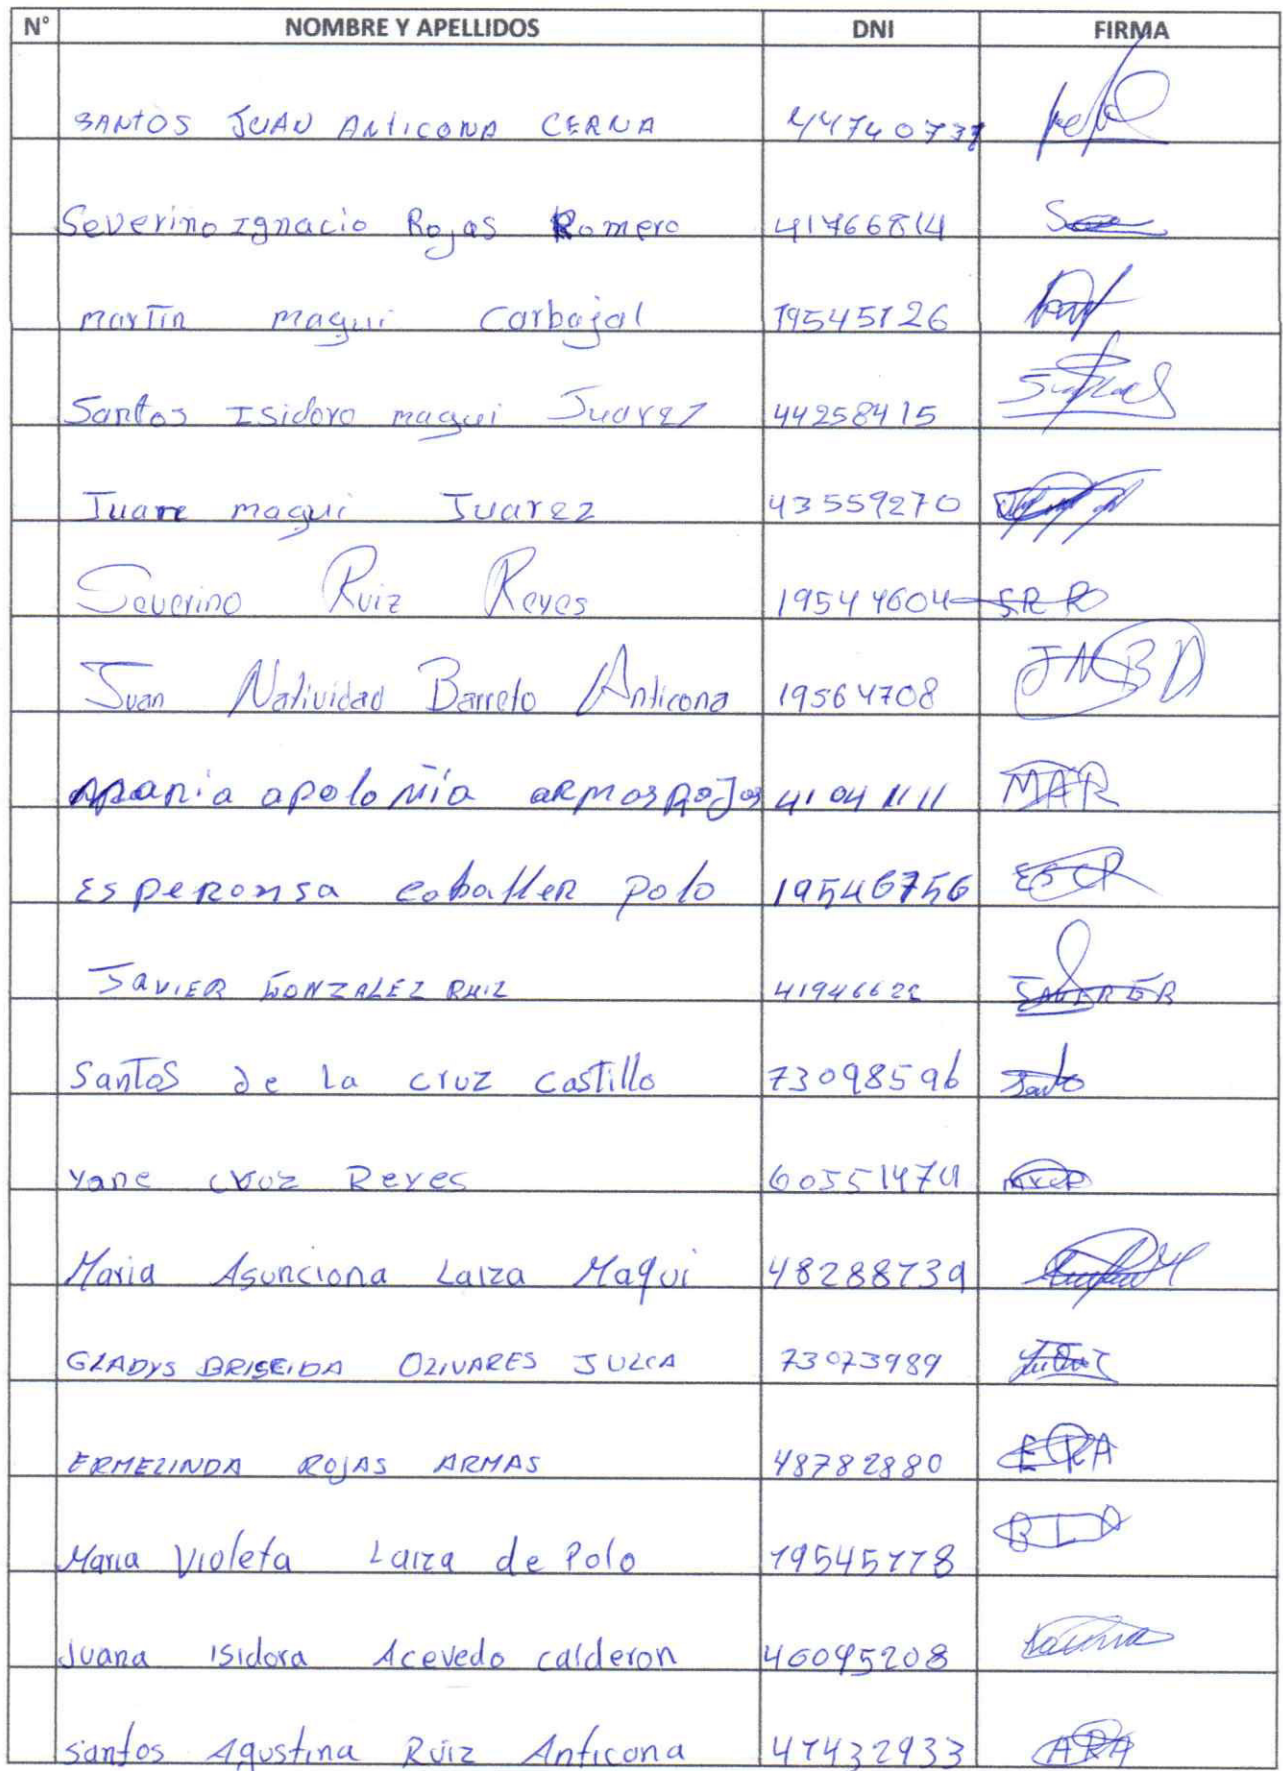 N° NOMBRE Y APELLIDOS DNI FIRMA
SANTOS JUAN ANTICONA CERNA 44740737
Severino Ignacio Rojas Romero 41766814
martin maqui Carbajal 19545126
Santos Isidoro maqui Juarez 44258415
Juane maqui Juarez 43559270
Severino Ruiz Reyes 19544604 SRR
Juan Natividad Barreto Anticona 19564708 JNBA
apolonia armas Rojas 41041111 MAR
Esperonsa caballer polo 19546756 ESCP
JAVIER GONZALEZ RUIZ 41946622
Santos de la cruz castillo 73098596 Santo
Yane cruz Reyes 60551474
Maria Asunciona Laiza Maqui 48288739
GLADYS BRISEIDA OLIVARES JULCA 73073989
ERMELINDA ROJAS ARMAS 48782880 ERA
Maria Violeta Laiza de Polo 19545178 BLP
Juana Isidora Acevedo calderon 46095208
Santos Agustina Ruiz Anticona 47432933 ARA